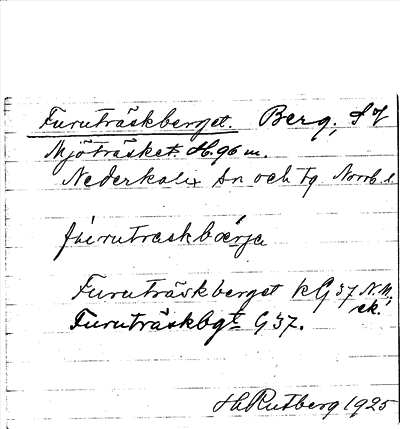 Furuträskberget. Berg, S of
Mjöträsket. H. 96 m.
Nederkalix sn och tg Norrb. l.
furutraskbærja
Furuträskberget kG 37 N.M.
ek.
Furuträskbgt G 37.
H Rutberg 1925